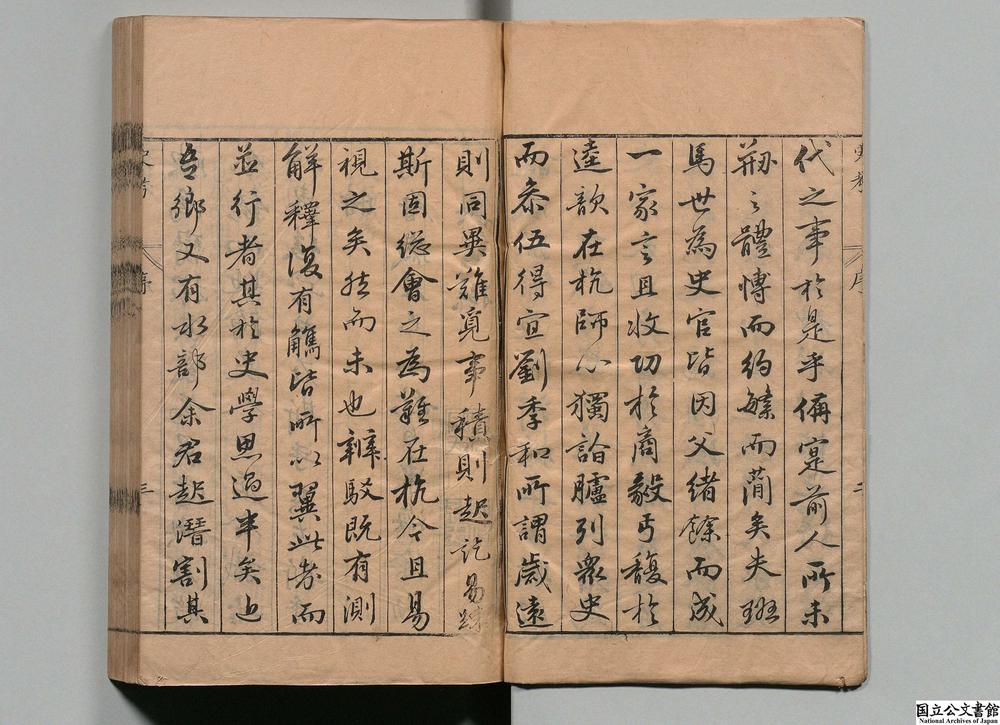 代之事於是乎備寔前人所未
剏之體博而約繁而簡矣夫班
馬世為史官皆因父緒餘而成
一家言且收功於商毅丐馥於
逵歆在杭師心獨詣臚列衆史
而叅伍得宜劉季和所謂歲遠
則同異難覓事積則起訖易踈
斯固總會之為難在杭今且易
視之矣然而未也辨駁既有測
解釋復有觿皆所以翼此考而
並行者其於史學思過半矣也
吾鄉又有水部余君起潛割其
序
二
三
国立公文書館
National Archives of Japan